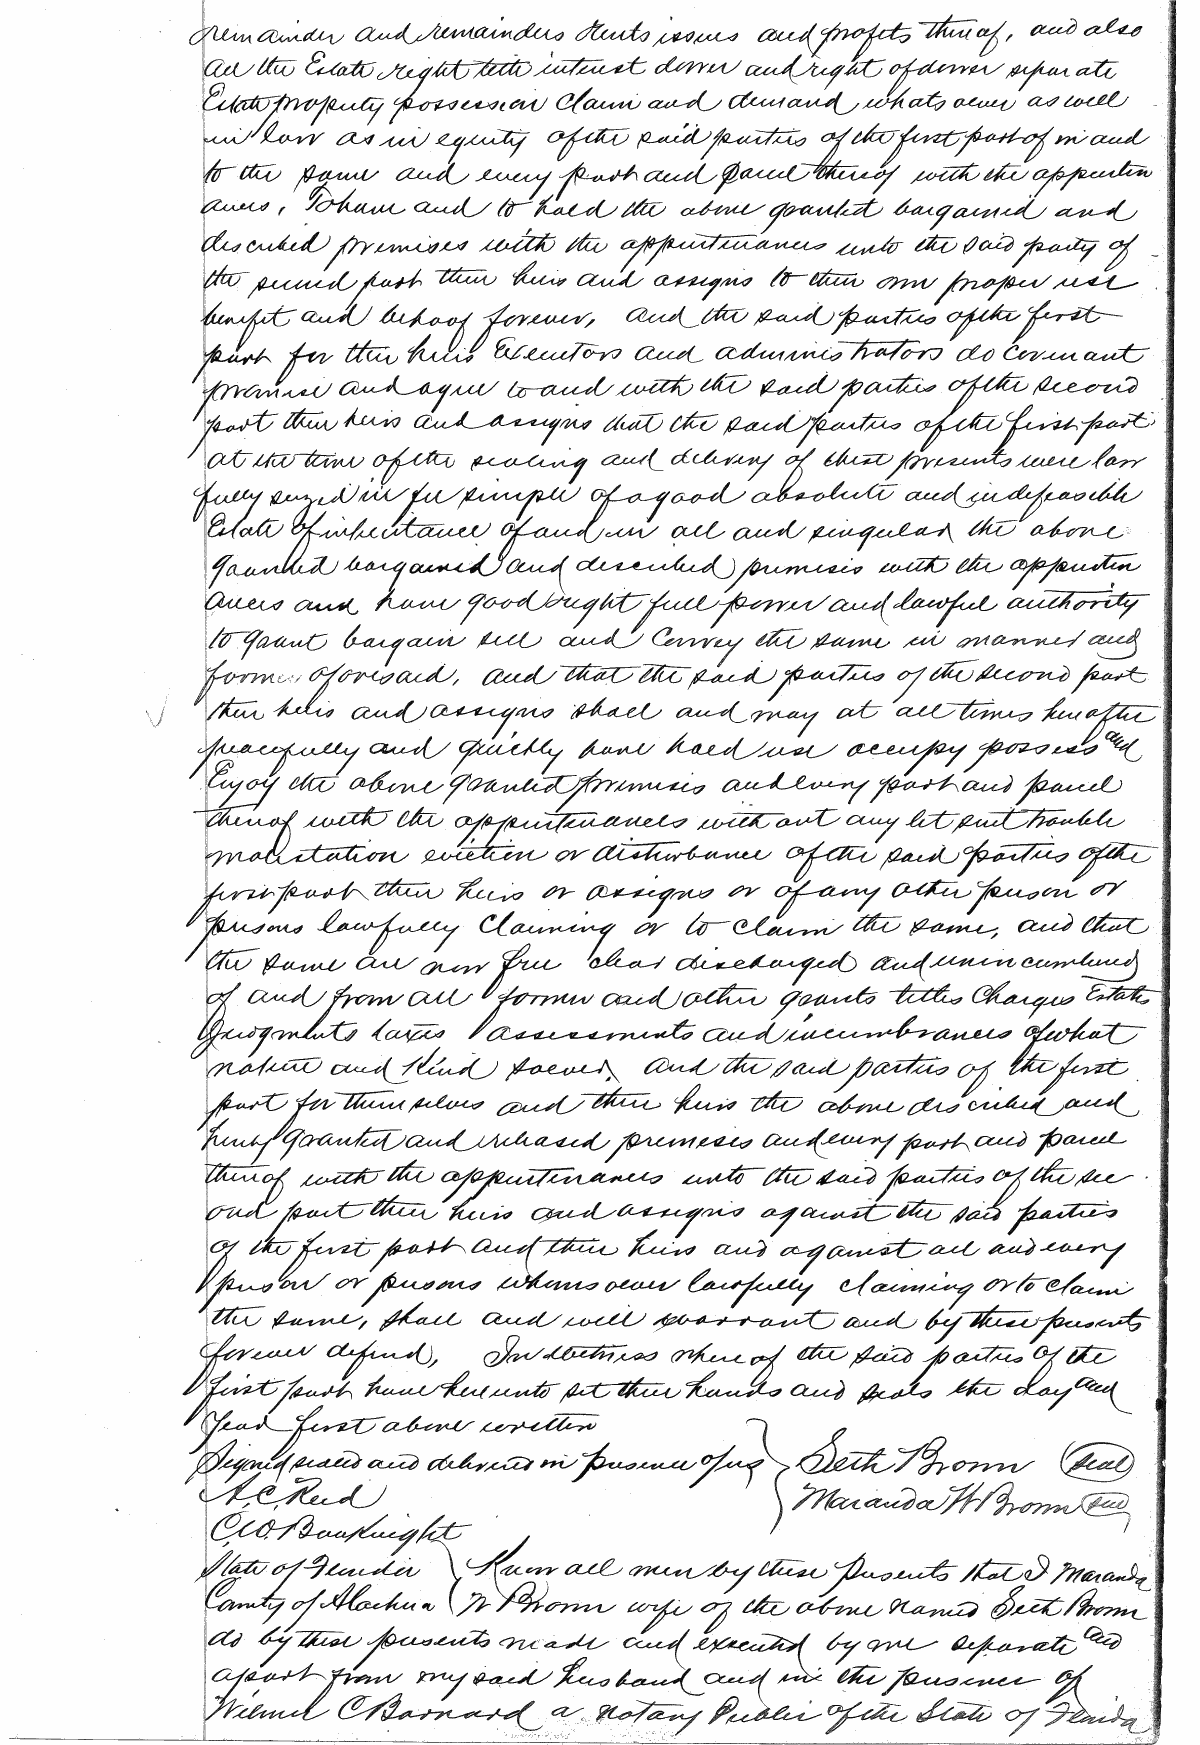 remainder and remainders rents issues and profits thereof, and also
all the Estate right title interest dower and right of dower separate
Estate property possession claim and demand whatsoever as well
in law as in equity of the said parties of the first part of in and
to the same and every part and parcel thereof with the appurten
ances, To have and to hold the above granted bargained and
described premises with the appurtenances unto the said party of
the second part their heirs and assigns to their own proper use
benefit and behoof forever, and the said parties of the first
part for their heirs Executors and administrators do covenant
promise and agree to and with the said parties of the second
part their heirs and assigns that the said parties of the first part
at the time of the sealing and delivery of these presents were law
fully seized in fee simple of a good absolute and indefeasible
Estate of inheritance of and in all and singular the above
granted bargained and described premises with the appurten
ances and have good right full power and lawful authority
to grant bargain sell and convey the same in manner and
form aforesaid, and that the said parties of the second part
their heirs and assigns shall and may at all times hereafter
peacefully and quickly have hold use occupy possess and
Enjoy the above granted premises and every part and parcel
thereof with the appurtenances without any let suit trouble
molestation eviction or disturbance of the said parties of the
first part their heirs or assigns or of any other person or
persons lawfully claiming or to claim the same, and that
the same are now free clear discharged and unincumbered
of and from all former and other grants titles charges Estates
Judgments taxes assessments and incumbrances of what
nature and Kind soever, And the said parties of the first
part for themselves and their heirs the above described and
hereby granted and released premises and every part and parcel
thereof with the appurtenances unto the said parties of the sec
ond part their heirs and assigns against the said parties
of the first part and their heirs and against all and every
person or persons whomsoever lawfully claiming or to claim
the same, shall and will warrant and by these presents
forever defend, In Witness whereof the said parties of the
first part have hereunto set their hands and seals the day and
year first above written
Signed sealed and delivered in presence of us Seth Brown (Seal)
A. C. Reid Maranda W Brown (Seal)
C. O. Bouknight
State of Florida Know all men by these presents that I Maranda
County of Alachua W Brown wife of the above named Seth Brown
do by these presents made and executed by me separate and
apart from my said husband and in the presence of
C Barnard a Notary Public of the State of Florida